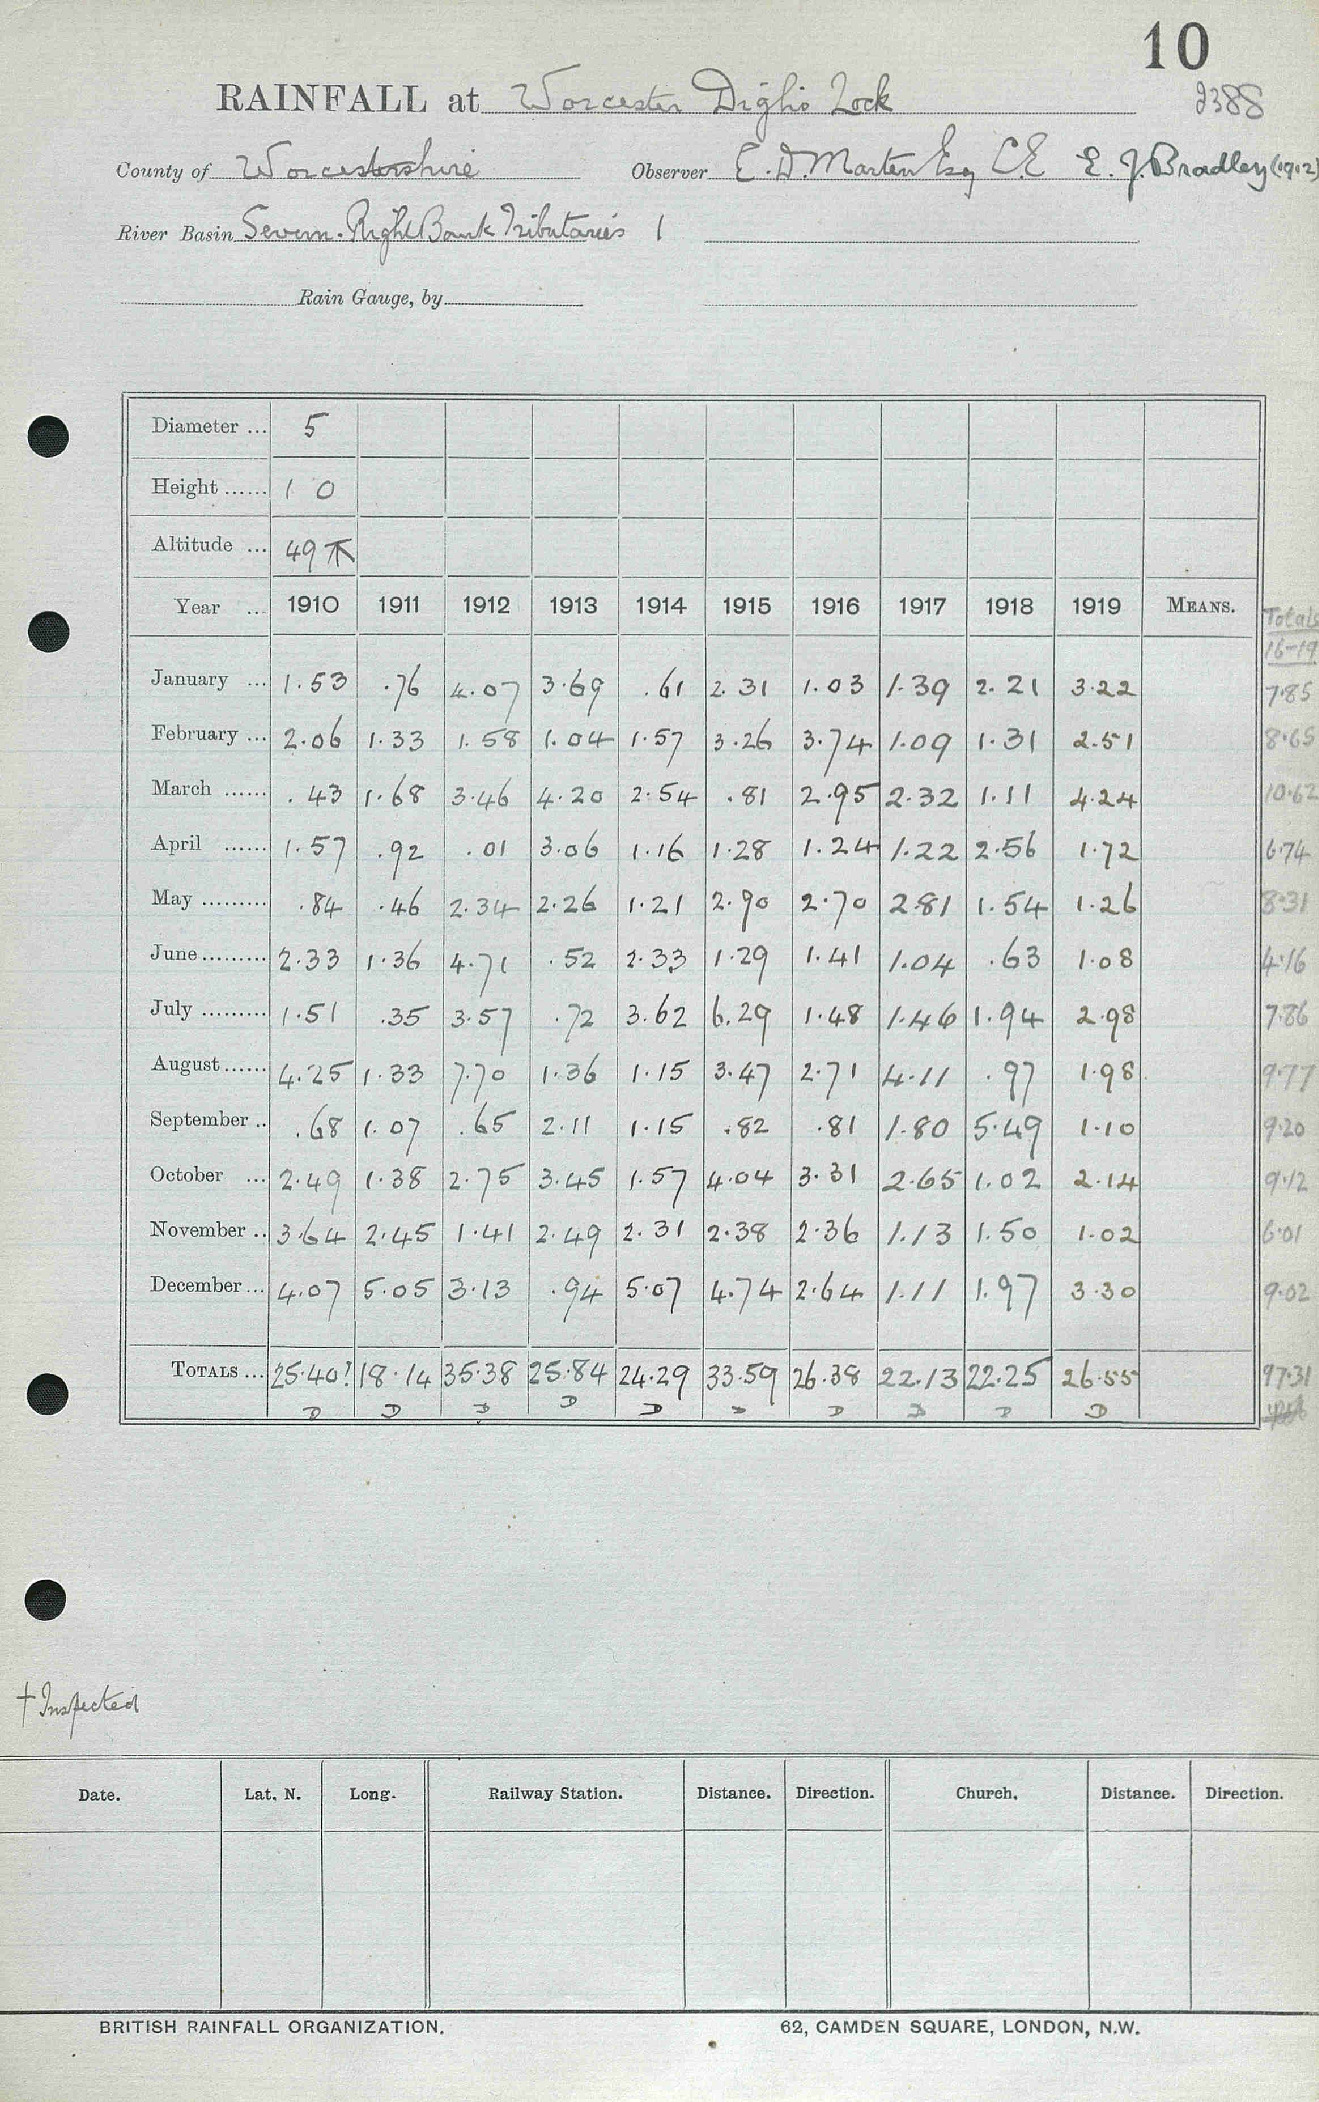 10
RAINFALL at Worcester Diglis Lock 2388
County of Worcestershire Observer E. D. Marten Esq C.E E. J. Bradley (1912)
River Basin Severn. Right Bank Tributaries 1
Rain Gauge, by
Diameter ... 5
Height ...... 1 0
Altitude ... 49
Year ... 1910 1911 1912 1913 1914 1915 1916 1917 1918 1919 MEANS. Totals
16-19
January ... 1.53 .76 4.07 3.69 .61 2.31 1.03 1.39 2.21 3.22 7.85
February ... 2.06 1.33 1.58 1.04 1.57 3.26 3.74 1.09 1.31 2.51 8.65
March ...... .43 1.68 3.46 4.20 2.54 .81 2.95 2.32 1.11 4.24 10.62
April ...... 1.57 .92 .01 3.06 1.16 1.28 1.24 1.22 2.56 1.72 6.74
May ......... .84 .46 2.34 2.26 1.21 2.90 2.70 2.81 1.54 1.26 8.31
June ......... 2.33 1.36 4.71 .52 2.33 1.29 1.41 1.04 .63 1.08 4.16
July ......... 1.51 .35 3.57 .72 3.62 6.29 1.48 1.46 1.94 2.98 7.86
August ...... 4.25 1.33 7.70 1.36 1.15 3.47 2.71 4.11 .97 1.98 9.77
September .. .68 1.07 .65 2.11 1.15 .82 .81 1.80 5.49 1.10 9.20
October ... 2.49 1.38 2.75 3.45 1.57 4.04 3.31 2.65 1.02 2.14 9.12
November .. 3.64 2.45 1.41 2.49 2.31 2.38 2.36 1.13 1.50 1.02 6.01
December ... 4.07 5.05 3.13 .94 5.07 4.74 2.64 1.11 1.97 3.30 9.02
TOTALS ... 25.40? 18.14 35.38 25.84 24.29 33.59 26.38 22.13 22.25 26.55 97.31
D D D D D D D D D D
† Inspected
Date. Lat. N. Long. Railway Station. Distance. Direction. Church. Distance. Direction.
BRITISH RAINFALL ORGANIZATION. 62, CAMDEN SQUARE, LONDON, N.W.